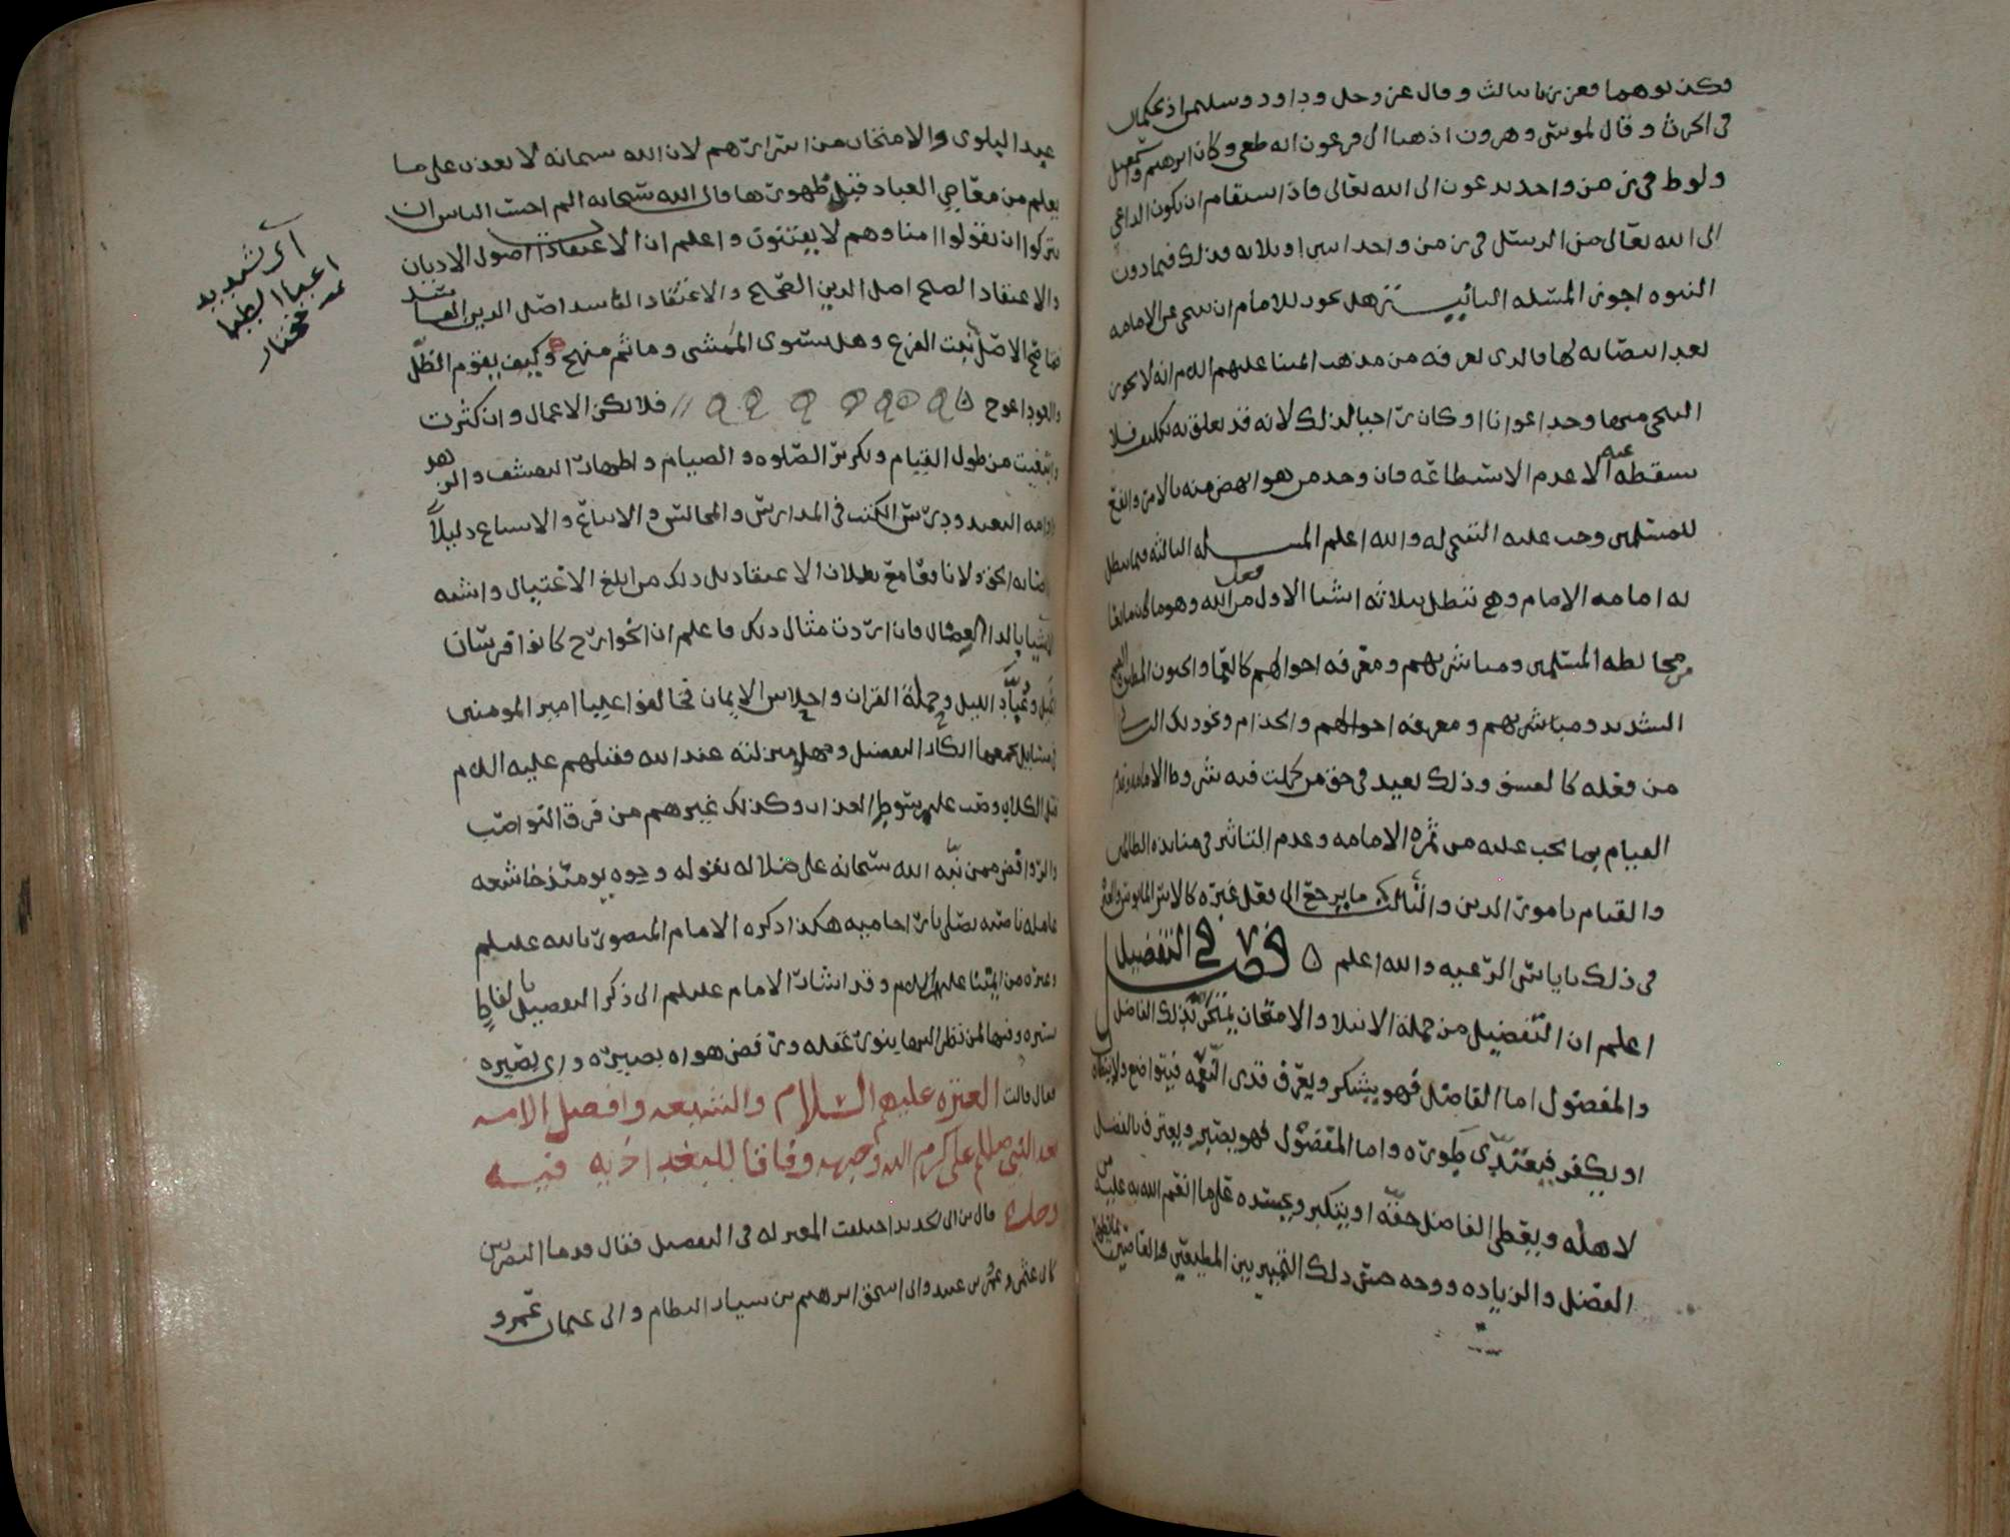 فكذبوهما فعززنا بثالث وقال عز وجل وداود وسليمن اذ يحكمان
في الحرث وقال لموسى وهرون اذهبا الى فرعون انه طغى وكان ابرهيم واسمعيل
ولوط في زمن واحد يدعون الى الله تعالى فاذا استقام ان يكون الداعي
الى الله تعالى من الرسل في زمن واحد اثنين او ثلاثه فذلك فيما دون
النبوه اجوز المسئله الثانيه هل يجوز للامام ان يتنحى عن الامامه
بعد انتصابه لها فالذي نعرفه من مذهب ائمتنا عليهم السلام انه لا يجوز
التنحي منها وجد اعوانا او كان راجيا لذلك لانه قد تعلق به تكليف فلا
يسقطه عنه الا عدم الاستطاعه فان وجد من هو انهض منه بالامر وانفع
للمسلمين وجب عليه التنحي له والله اعلم المسئله الثالثه فيما تبطل
به امامه الامام وهي تبطل بثلاثه اشيا الاول من فعل الله وهو ما كان مانعا
من مخالطه المسلمين ومباشرتهم ومعرفه احوالهم كالعما والجنون المطبق
الشديد ومباشرتهم ومعرفه احوالهم والجذام ونحو ذلك الثاني
من فعله كالفسق وذلك بعيد في حق من كملت فيه شروط الامامه وعدم
القيام بما يجب عليه من ثمره الامامه وعدم التناثر في منابذه الظالمين
والقيام بامور الدين والثالث ما يرجع الى فعل غيره كالاسر المايوس
في ذلك باياس الرعيه والله اعلم ٥ فصل في التفضيل
اعلم ان التفضيل من جملة الابتلا والامتحان يمتحن بذلك الفاضل
والمفضول اما الفاضل فهو يشكر ويعرف قدر النعمه فيتواضع
او يكفر فيتعدى طوره واما المفضول فهو يصبر ويعترف بالفضل
لاهله ويعطي الفاضل حقه او يتكبر ويحسده على ما انعم الله به عليه من
الفضل والزياده ووجه حسن ذلك التمييز بين المطيعين والعاصين
عبيد البلوى والامتحان من اسرارهم لان الله سبحانه لا يعذب على ما
يعلم من معاصي العباد قبل ظهورها قال الله سبحانه الم احسب الناس ان
يتركوا ان يقولوا امنا وهم لا يفتنون واعلم ان الاعتقادات اصول الاديان
والاعتقاد الصحيح اصل الدين الصحيح والاعتقاد الفاسد اصل الدين الفاسد
فما صح الاصل ثبت الفرع وهل يستوي الممشى وما ثم منهج وكيف يقوم الظل
والعود اعوج ٥ // فلا تكن الاعمال وان كثرت
واتعبت من طول القيام وتكرير الصلوه والصيام واظهار التقشف والزهد
وادامه التعبد ودرس الكتب في المدارس والمجالس والاتباع والاسماع دليلا
اصابه الحق ولا نافعا مع بطلان الاعتقاد بل ذلك من ابلغ الاغتيال واشبه
الاشيا بالدا العضال فان اردت مثال ذلك فاعلم ان الخوارج كانوا فرسان
الخيل وعباد الليل وحملة القران واحلاس الايمان فخالفوا عليا امير المومنين
في مسايل يجمعها انكار التفضيل وجهل منزلته عند الله فقتلهم عليه السلام
قتل الكلاب وصب عليهم سوط العذاب وكذلك غيرهم من فرق النواصب
والروافض ممن نبه الله سبحانه على ضلاله بقوله وجوه يومئذ خاشعه
عامله ناصبه تصلى نارا حاميه هكذا ذكره الامام المنصور بالله عليلم
وغيره من ائمتنا عليهم السلام وقد اشار الامام عليلم الى ذكر التفضيل بالفاظ
يسيره وفيها لمن نظر اليها بنور عقله ورفض هواه بصيره واي بصيره
فقال قالت العتره عليهم السلام والشيعه وافضل الامه
بعد النبي صللم علي كرم الله وجهه وفاقا للبغداذيه فيه
وصلاه قال بن ابي الحديد اختلفت المعتزله في التفضيل فقال قدما البصريين
كابي عثمن وعمرو بن عبيد وابي اسحق ابرهيم بن سيار النظام وابي عثمان عمرو